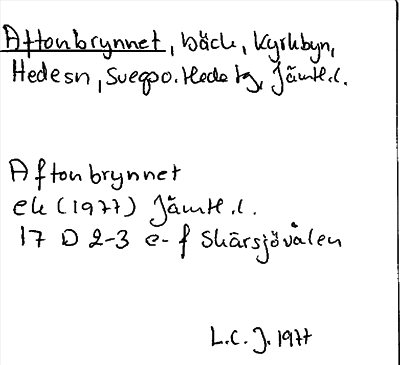 Aftonbrynnet, bäck, Kyrkbyn,
Hedesn, Svegpo. Hede tg, Jämtl.l.
Aftonbrynnet
ek (1977) Jämtl.l.
17 D 2-3 e-f Skärsjövålen
L.C.J. 1977